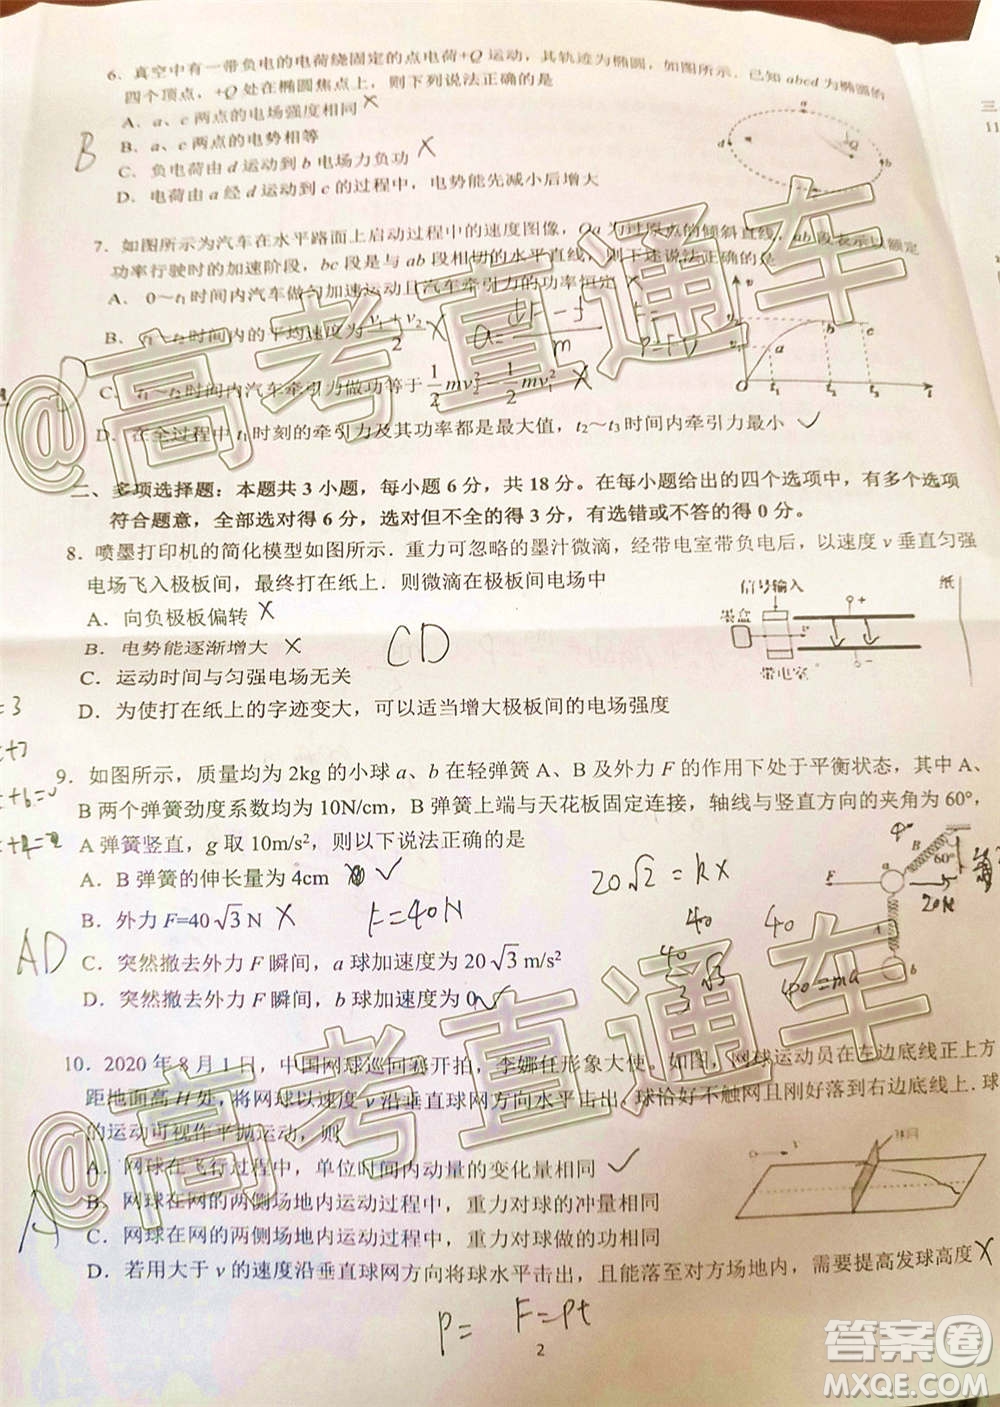 6．真空中有一带负电的电荷绕固定的点电荷+Q运动，其轨迹为椭圆，如图所示．已知abcd为椭圆的
四个顶点，+Q处在椭圆焦点上，则下列说法正确的是
A．a、c两点的电场强度相同 X
B．a、c两点的电势相等
C．负电荷由d运动到b电场力负功 X
D．电荷由a经d运动到c的过程中，电势能先减小后增大
B
a
d
b
Q
7．如图所示为汽车在水平路面上启动过程中的速度图像，Oa为过原点的倾斜直线，ab段表示以额定
功率行驶时的加速阶段，bc段是与ab段相切的水平直线，则下述说法正确的是
A．0～t₁时间内汽车做匀加速运动且汽车牵引力的功率恒定 X
B．t₁～t₂时间内的平均速度为 (v₁+v₂)/2 X
C．t₁～t₂时间内汽车牵引力做功等于 1/2 mv₂² − 1/2 mv₁² X
D．在全过程中t₁时刻的牵引力及其功率都是最大值，t₂～t₃时间内牵引力最小 ✓
v
a
b
c
t₁ t₂ t₃ t
二、多项选择题：本题共3小题，每小题6分，共18分。在每小题给出的四个选项中，有多个选项
符合题意，全部选对得6分，选对但不全的得3分，有选错或不答的得0分。
8．喷墨打印机的简化模型如图所示．重力可忽略的墨汁微滴，经带电室带负电后，以速度v垂直匀强
电场飞入极板间，最终打在纸上．则微滴在极板间电场中
A．向负极板偏转 X
B．电势能逐渐增大 X
C．运动时间与匀强电场无关
D．为使打在纸上的字迹变大，可以适当增大极板间的电场强度
CD
信号输入
墨盒
带电室
纸
9．如图所示，质量均为2kg的小球a、b在轻弹簧A、B及外力F的作用下处于平衡状态，其中A、
B两个弹簧劲度系数均为10N/cm，B弹簧上端与天花板固定连接，轴线与竖直方向的夹角为60°，
A弹簧竖直，g取10m/s²，则以下说法正确的是
A．B弹簧的伸长量为4cm ✓
B．外力F=40√3N X
C．突然撤去外力F瞬间，a球加速度为20√3m/s²
D．突然撤去外力F瞬间，b球加速度为0 ✓
AD
F=40N
20√2=kx
40=ma
20N
F
a
B
60°
A
b
10．2020年8月1日，中国网球巡回赛开拍，李娜任形象大使。如图，网球运动员在左边底线正上方
距地面高H处，将网球以速度v沿垂直球网方向水平击出，球恰好不触网且刚好落到右边底线上．球
的运动可视作平抛运动，则
A．网球在飞行过程中，单位时间内动量的变化量相同 ✓
B．网球在网的两侧场地内运动过程中，重力对球的冲量相同
C．网球在网的两侧场地内运动过程中，重力对球做的功相同
D．若用大于v的速度沿垂直球网方向将球水平击出，且能落至对方场地内，需要提高发球高度 X
A
球网
P=
F=Pt
2
@高考直通车
@高考直通车
答案圈
MXQE.COM
三
11